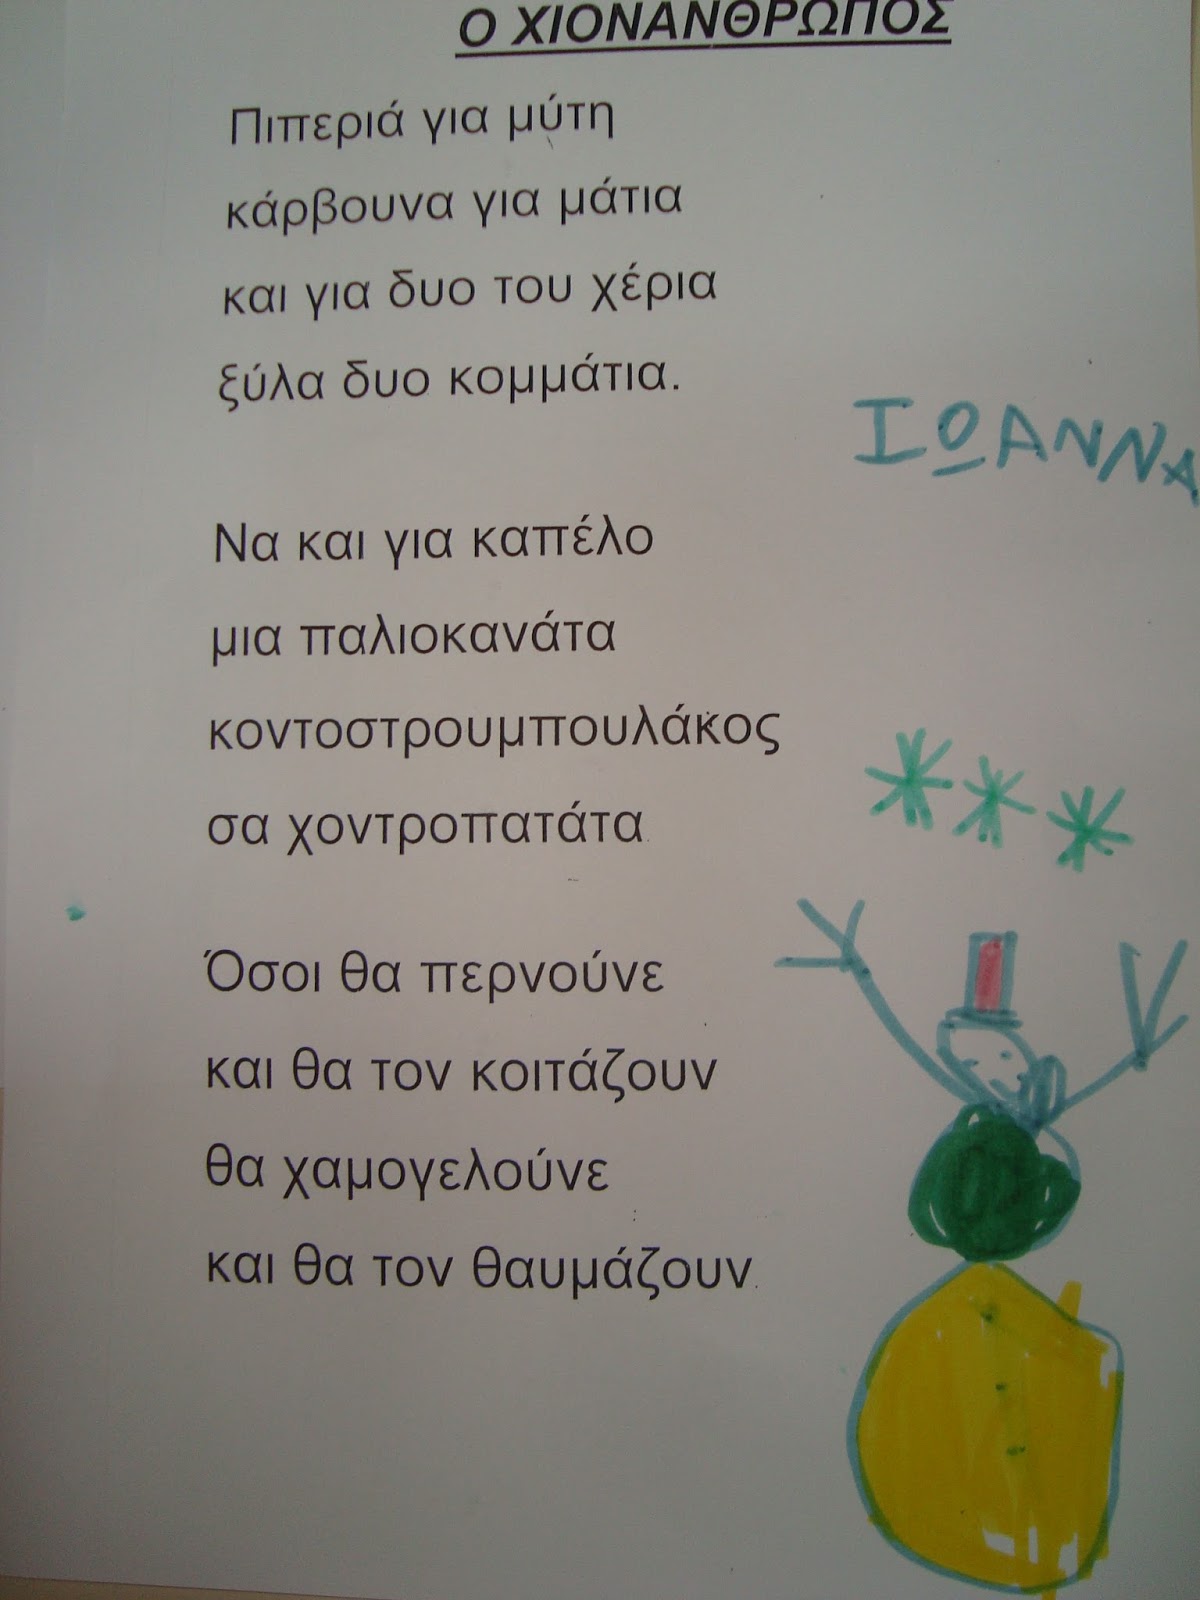 Ο ΧΙΟΝΑΝΘΡΩΠΟΣ
Πιπεριά για μύτη
κάρβουνα για μάτια
και για δυο του χέρια
ξύλα δυο κομμάτια.
ΙΩΑΝΝΑ
Να και για καπέλο
μια παλιοκανάτα
κοντοστρουμπουλάκος
σα χοντροπατάτα.
Όσοι θα περνούνε
και θα τον κοιτάζουν
θα χαμογελούνε
και θα τον θαυμάζουν.